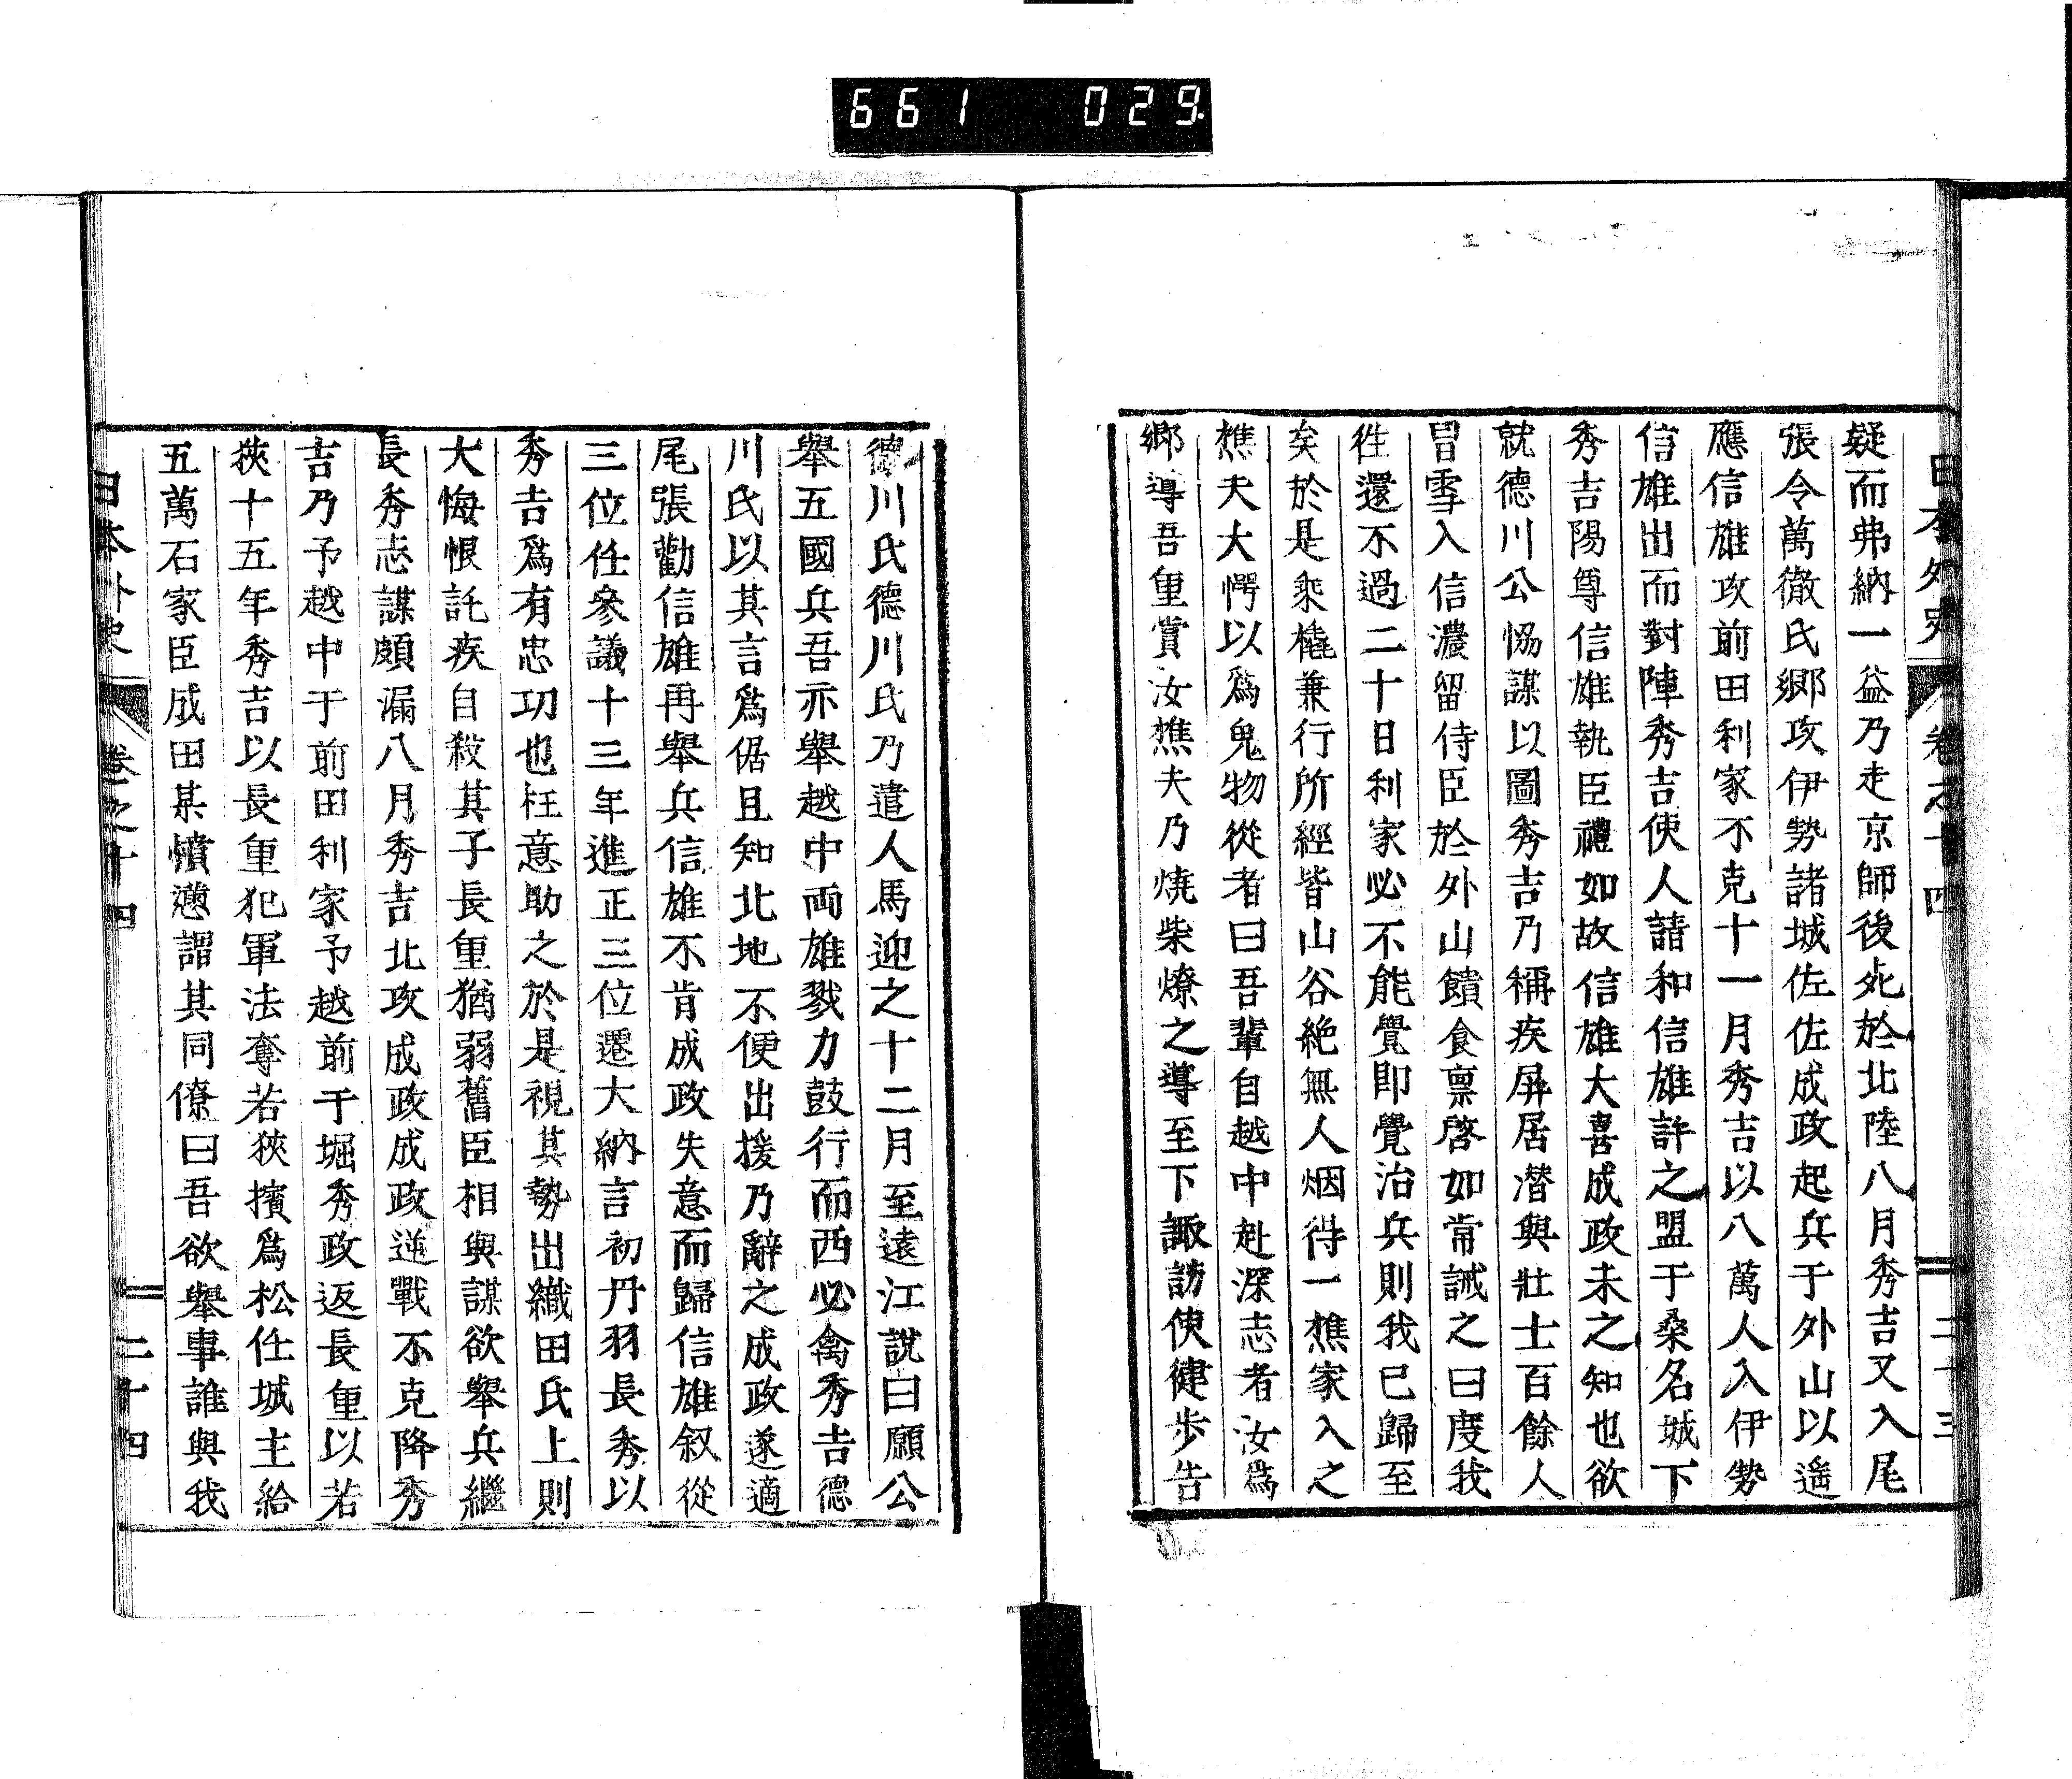 661 029
日本外史 卷之十四 二十三
疑而弗納一益乃走京師後死於北陸八月秀吉又入尾
張令萬徹氏鄉攻伊勢諸城佐佐成政起兵于外山以遙
應信雄攻前田利家不克十一月秀吉以八萬人入伊勢
信雄出而對陣秀吉使人請和信雄許之盟于桑名城下
秀吉陽尊信雄執臣禮如故信雄大喜成政未之知也欲
就德川公恊謀以圖秀吉乃稱疾屏居潛與壯士百餘人
冒雪入信濃留侍臣於外山饋食稟啓如常誡之曰度我
徃還不過二十日利家必不能覺即覺治兵則我已歸至
矣於是乘橇兼行所經皆山谷絶無人烟得一樵家入之
樵夫大愕以爲鬼物從者曰吾輩自越中赴深志者汝爲
鄉導吾重賞汝樵夫乃燒柴燎之導至下諏訪使健步告
德川氏德川氏乃遣人馬迎之十二月至遠江說曰願公
舉五國兵吾亦舉越中兩雄戮力鼓行而西必禽秀吉德
川氏以其言爲倨且知北地不便出援乃辭之成政遂適
尾張勸信雄再舉兵信雄不肯成政失意而歸信雄叙從
三位任參議十三年進正三位遷大納言初丹羽長秀以
秀吉爲有忠功也枉意助之於是視其勢出織田氏上則
大悔恨託疾自殺其子長重猶弱舊臣相與謀欲舉兵繼
長秀志謀頗漏八月秀吉北攻成政成政逆戰不克降秀
吉乃予越中于前田利家予越前于堀秀政返長重以若
狹十五年秀吉以長重犯軍法奪若狹擯爲松任城主給
五萬石家臣成田某憤懣謂其同僚曰吾欲舉事誰與我
日本外史 卷之十四 二十四